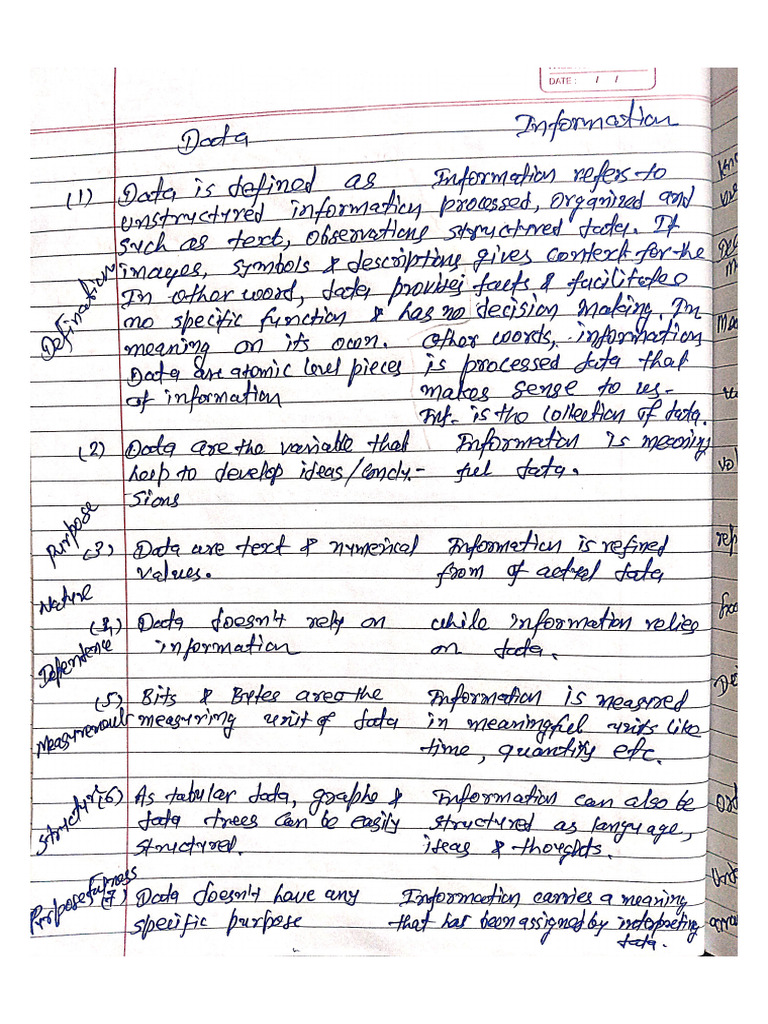 DATE: / /
Data
Information
Definations
(1) Data is defined as
unstructured information
such as text, observations
images, symbols & descriptions
In other word, data provides
no specific function & has no
meaning on its own.
Data are atomic level pieces
of information
Information refers to
processed, organized and
structured data. It
gives context for the
facts & facilitates
decision making. In
other words, information
is processed data that
makes sense to us-
Inf. is the collection of data.
Purpose
(2) Data are the variable that
help to develop ideas/conclu-
sions
Information is meaning
ful data.
Nature
(3) Data are text & numerical
values.
Information is refined
from of actual data
Dependence
(4) Data doesn't rely on
information
while information relies
on data.
Measurement
(5) Bits & Bytes are the
measuring unit of data
Information is measured
in meaningful units like
time, quantity etc.
Structure
(6) As tabular data, graphs &
data trees can be easily
structured.
Information can also be
structured as language,
ideas & thoughts.
Purposefulness
(7) Data doesn't have any
specific purpose
Information carries a meaning
that has been assigned by interpreting
data.